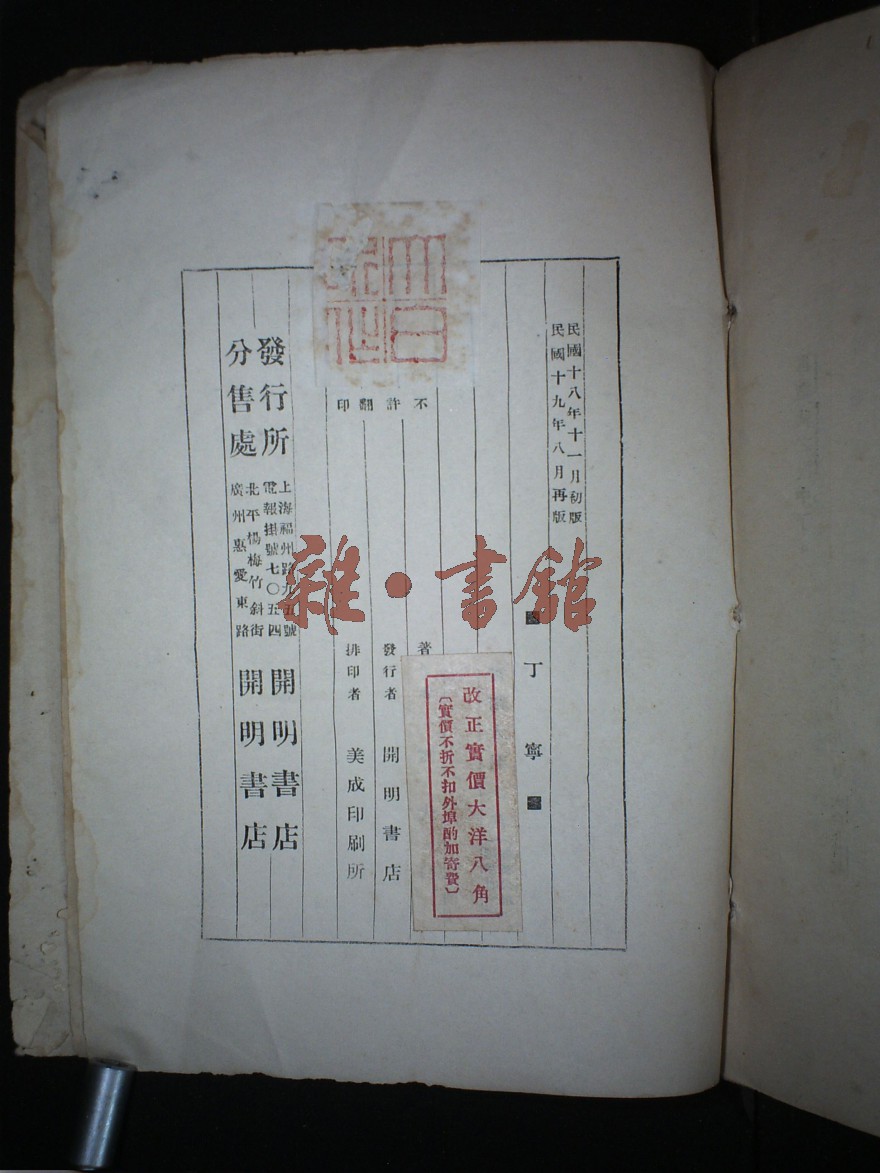 民國十八年十一月初版
民國十九年八月再版
丁寧
改正實價大洋八角
〔實價不折不扣外埠酌加寄費〕
著
發行者 開明書店
排印者 美成印刷所
不許翻印
大白
發行所
上海福州路九五號
電報掛號七〇五四
開明書店
分售處
北平楊梅竹斜街
廣州惠愛東路
開明書店
雜·書館